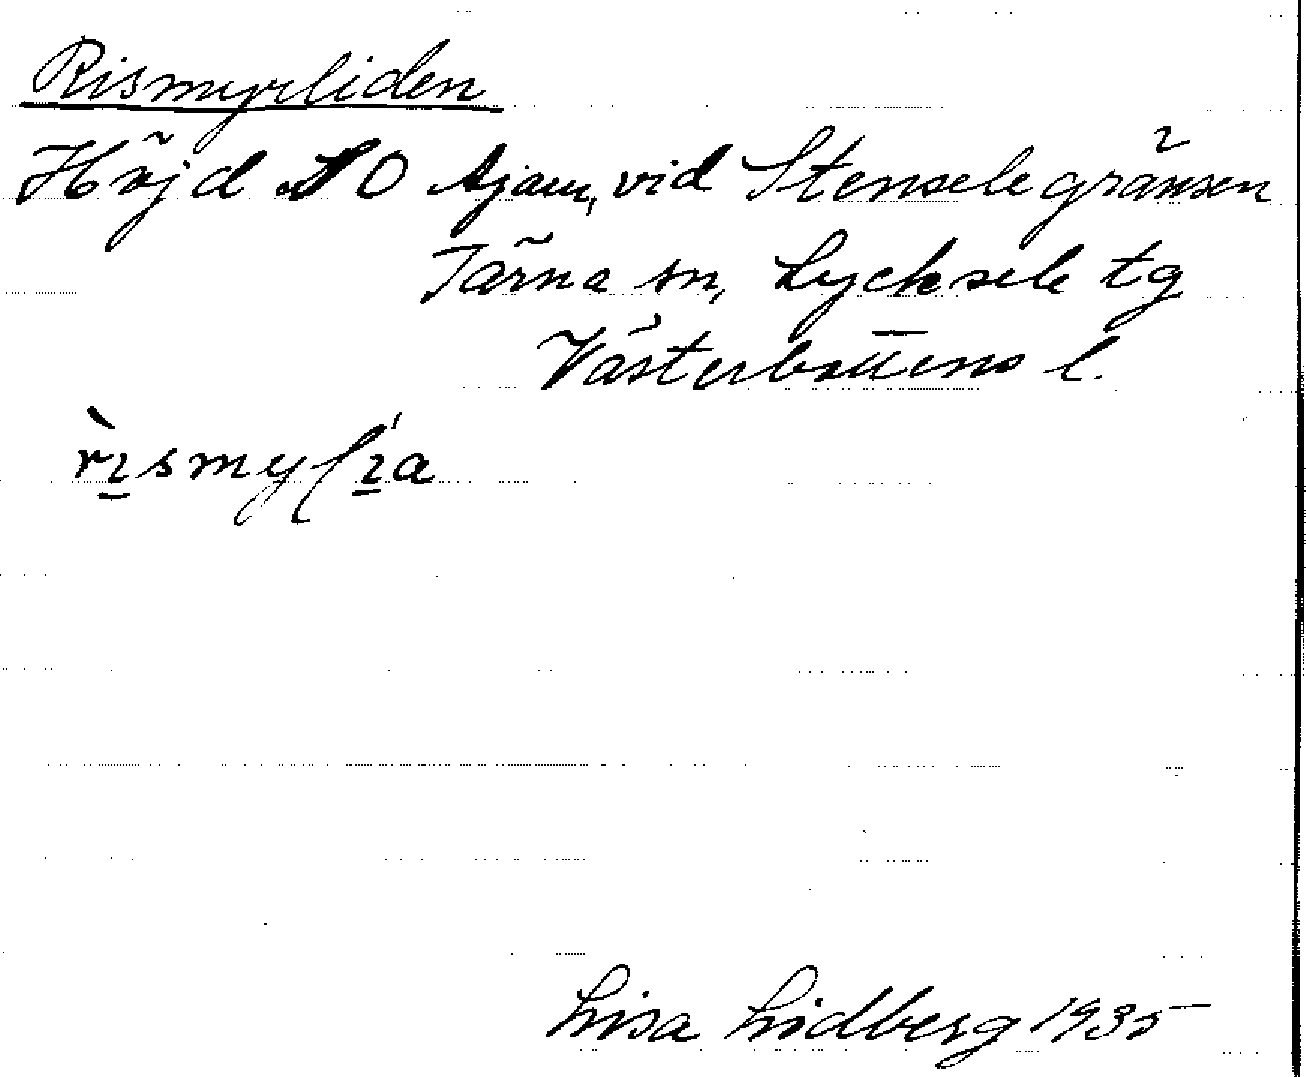 Rismyrliden
Höjd SO Ajaur, vid Stenselegränsen
Tärna sn, Lycksele tg
Västerbottens l.
rìsmyſı̱́a
Lisa Lidberg 1935